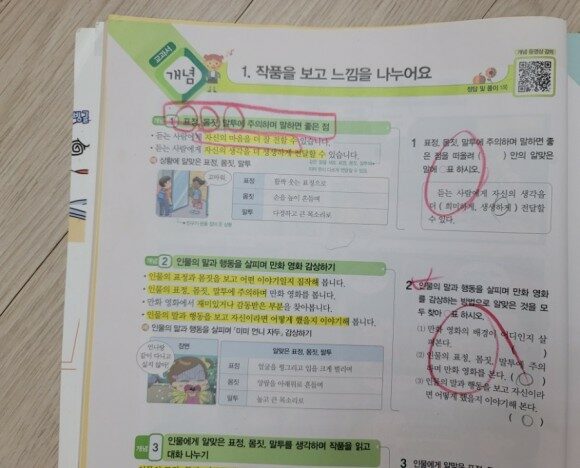 교과서
개념
1. 작품을 보고 느낌을 나누어요
개념 동영상 강의
정답 및 풀이 1쪽
개념 1 표정, 몸짓, 말투에 주의하며 말하면 좋은 점
• 듣는 사람에게 자신의 마음을 더 잘 전할 수 있습니다.
• 듣는 사람에게 자신의 생각을 더 생생하게 전달할 수 있습니다.
예 상황에 알맞은 표정, 몸짓, 말투
고마워.
표정 활짝 웃는 표정으로
몸짓 손을 높이 흔들며
말투 다정하고 큰 목소리로
1 표정, 몸짓, 말투에 주의하며 말하면 좋
은 점을 떠올려 ( ) 안의 알맞은
말에 ○표 하시오.
듣는 사람에게 자신의 생각을
더 ( 희미하게, 생생하게 ) 전달할
수 있다.
개념 2 인물의 말과 행동을 살피며 만화 영화 감상하기
• 인물의 표정과 몸짓을 보고 어떤 이야기일지 짐작해 봅니다.
• 인물의 표정, 몸짓, 말투에 주의하며 만화 영화를 봅니다.
• 만화 영화에서 재미있거나 감동받은 부분을 찾아봅니다.
• 인물의 말과 행동을 보고 자신이라면 어떻게 했을지 이야기해 봅니다.
예 인물의 말과 행동을 살피며 「미미 언니 자두」 감상하기
장면
언니랑
같이 다니고
싶지 않아!
알맞은 표정, 몸짓, 말투
표정 얼굴을 찡그리고 입을 크게 벌리며
몸짓 양팔을 아래위로 흔들며
말투 높고 큰 목소리로
2 인물의 말과 행동을 살피며 만화 영화
를 감상하는 방법으로 알맞은 것을 모
두 찾아 ○표 하시오.
(1) 만화 영화의 배경이 어디인지 살
펴본다.
(2) 인물의 표정, 몸짓, 말투에 주의
하며 만화 영화를 본다. ( ○ )
(3) 인물의 말과 행동을 보고 자신이라
면 어떻게 했을지 이야기해 본다.
( ○ )
개념 3 인물에게 알맞은 표정, 몸짓, 말투를 생각하며 작품을 읽고
대화 나누기
3